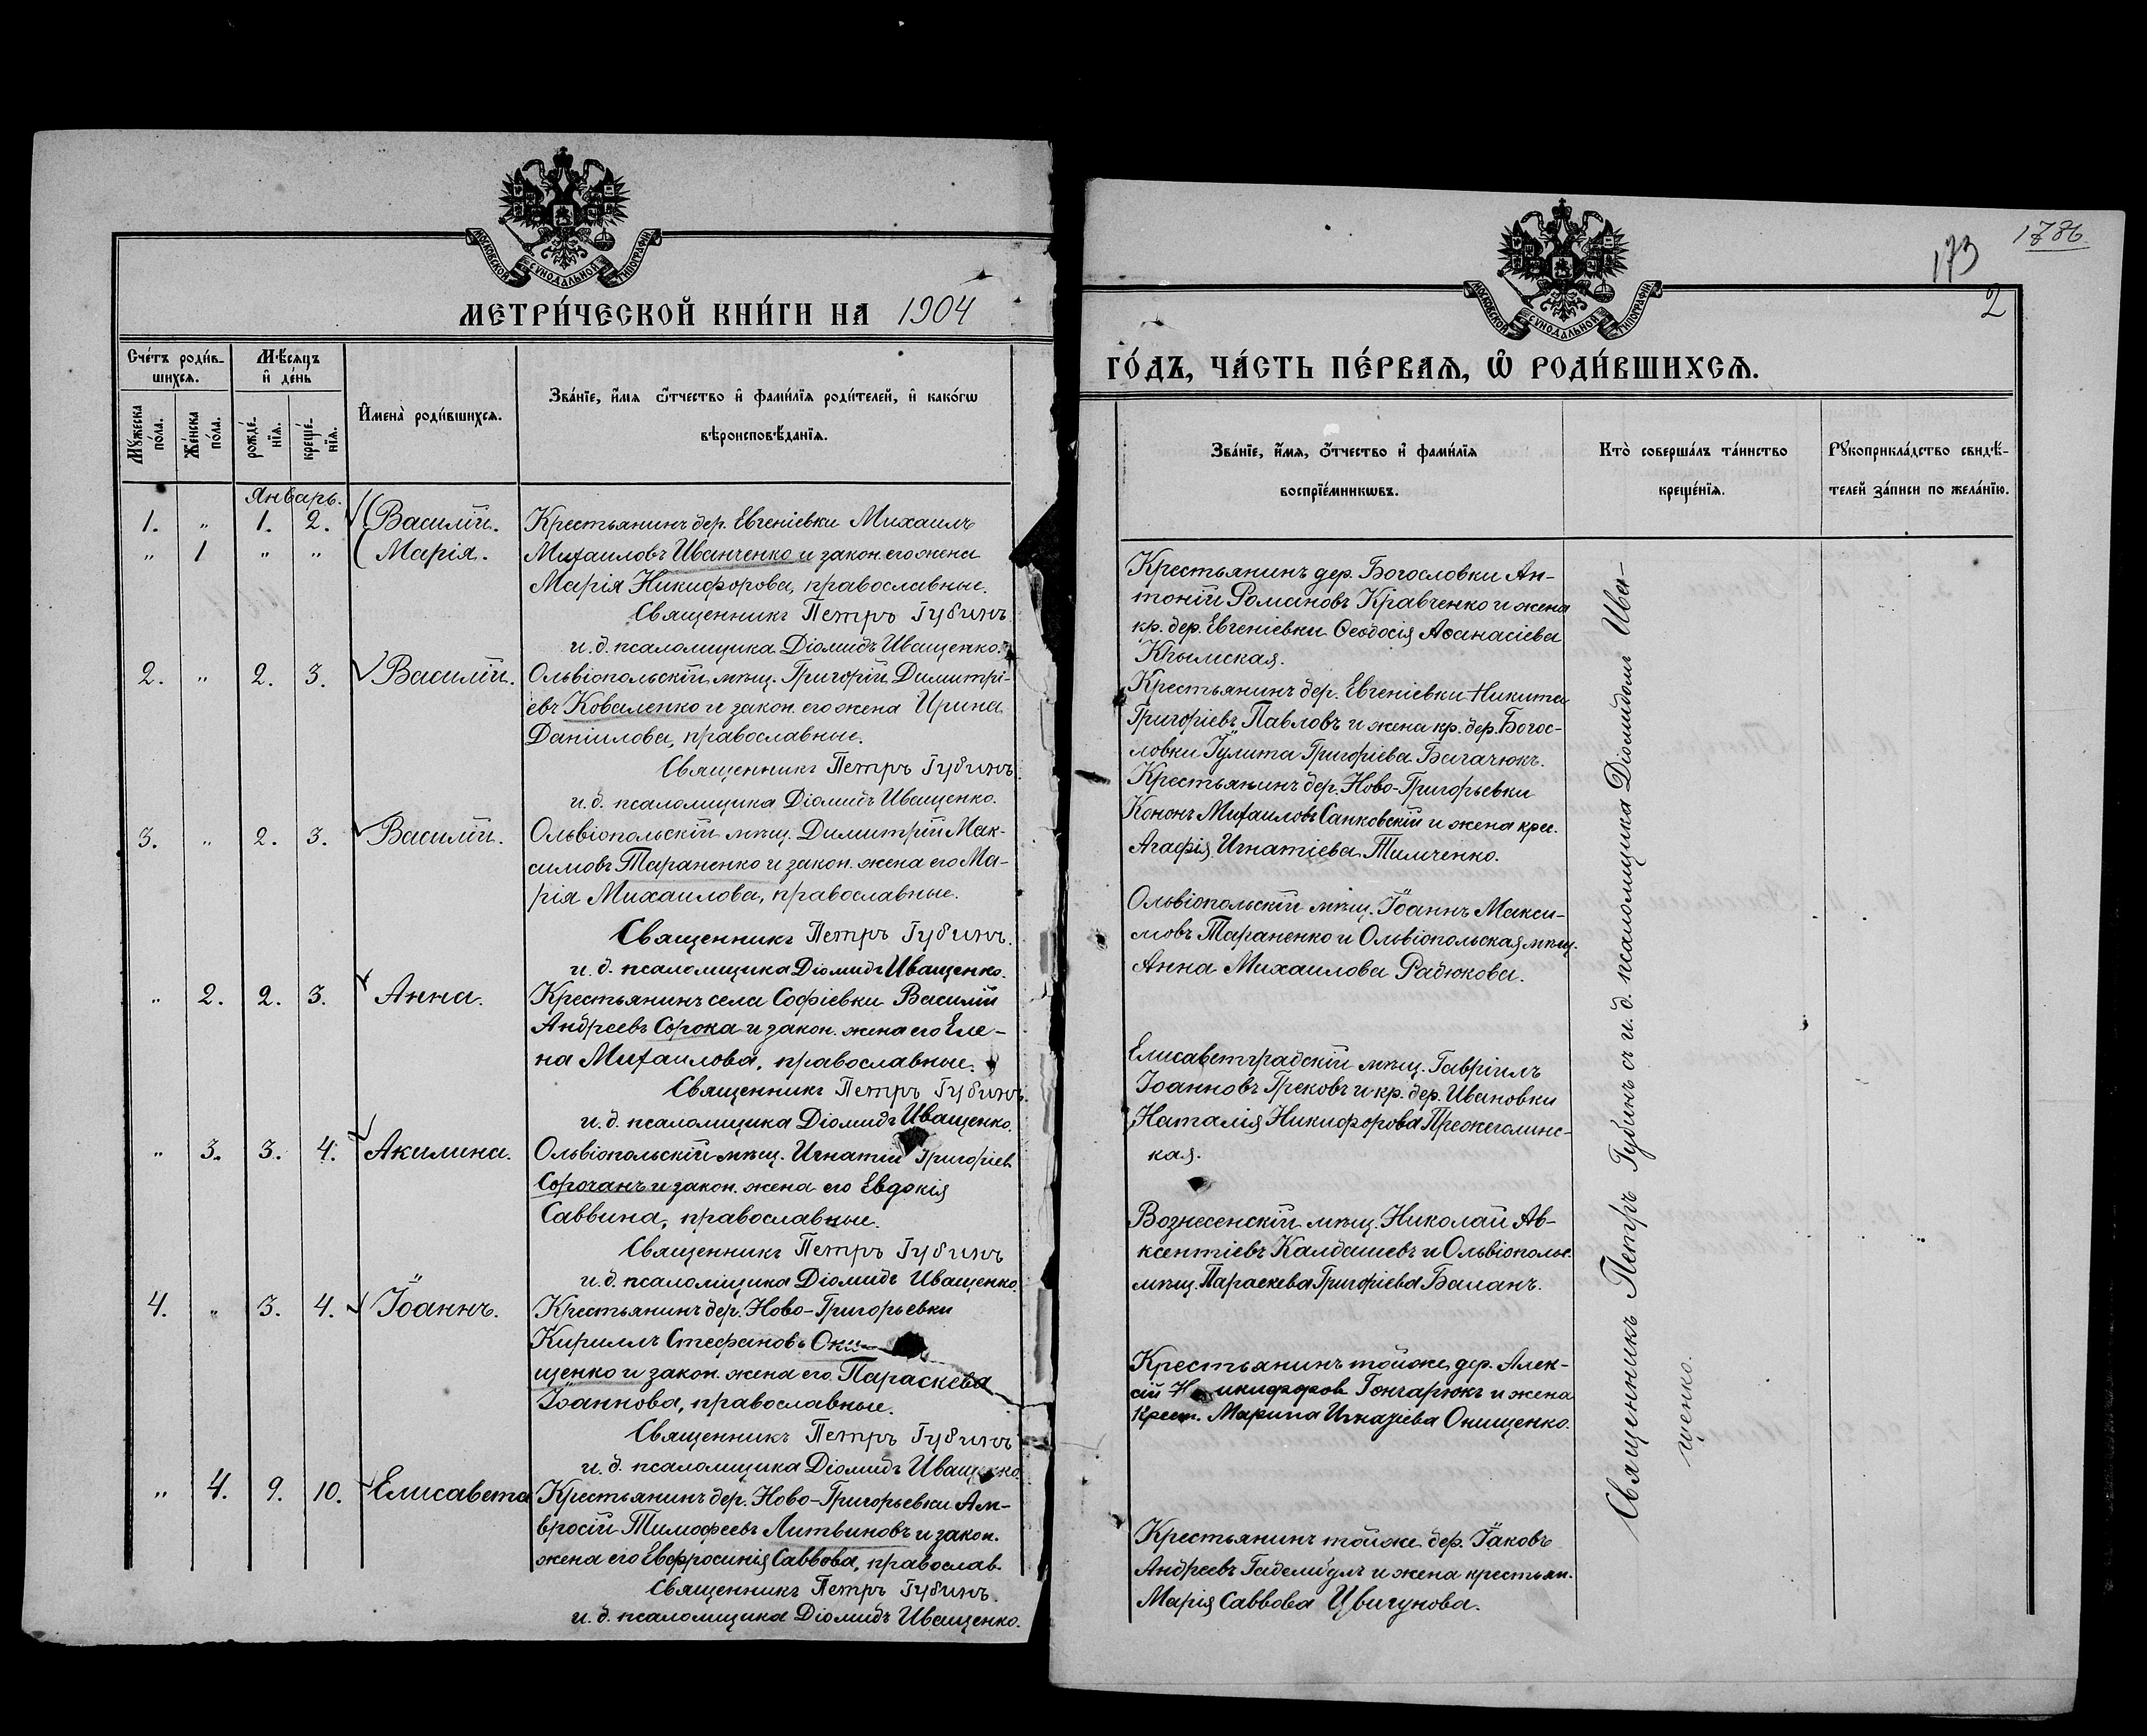 МОСКОВСКОЙ СѴНОДАЛЬНОЙ ТИПОГРАФІИ
МЕТРИ́ЧЕСКОЙ КНИ́ГИ НА 1904
Счéтъ роди́в-
шихсѧ.
Мѣ́сяцъ
и҆ дéнь
Мꙋ́жеска
пóла.
Жéнска
пóла.
рождé-
нїѧ.
крещé-
нїѧ.
И҆мена̀ роди́вшихсѧ.
Звáнїе, и҆́мѧ ѻ҆́тчество и҆ фами́лїѧ роди́телей, и҆ какóгѡ
вѣроисповѣ́данїѧ.
Январь.
1. „ 1. 2. Василій. Крестьянинъ дер. Евгеніевки Михаилъ
„ 1 „ „ Марія. Михаиловъ Иванченко и закон. его жена
Марія Никифорова, православные.
Священникъ Петръ Губинъ.
и. д. псаломщика Діомидъ Иващенко.
2. „ 2. 3. Василій. Ольвіопольскій мѣщ. Григорій Димитрі-
евъ Коваленко и закон. его жена Ирина
Даніилова, православные.
Священникъ Петръ Губинъ.
и. д. псаломщика Діомидъ Иващенко.
3. „ 2. 3. Василій. Ольвіопольскій мѣщ. Димитрій Мак-
симовъ Тараненко и закон. жена его Ма-
рія Михаилова, православные.
Священникъ Петръ Губинъ.
и. д. псаломщика Діомидъ Иващенко.
„ 2. 2. 3. Анна. Крестьянинъ села Софіевки Василій
Андреевъ Сорока и закон. жена его Еле-
на Михаилова, православные.
Священникъ Петръ Губинъ.
и. д. псаломщика Діомидъ Иващенко.
„ 3. 3. 4. Акилина. Ольвіопольскій мѣщ. Игнатій Григоріев
Сорочанъ и закон. жена его Евдокія
Саввина, православные.
Священникъ Петръ Губинъ
и. д. псаломщика Діомидъ Иващенко.
4. „ 3. 4. Іоаннъ. Крестьянинъ дер. Ново-Григорьевки
Кириллъ Стефановъ Они-
щенко и закон. жена его Параскева
Іоаннова, православные.
Священникъ Петръ Губинъ
и. д. псаломщика Діомидъ Иващенко
„ 4. 9. 10. Елисавета Крестьянинъ дер. Ново-Григорьевки Ам-
вросій Тимофеевъ Литвиновъ и закон.
жена его Евфросинія Саввова, православ.
Священникъ Петръ Губинъ.
и. д. псаломщика Діомидъ Иващенко.
173
178б
2
МОСКОВСКОЙ СѴНОДАЛЬНОЙ ТИПОГРАФІИ
ГÓДЪ, ЧÁСТЬ ПÉРВАѦ, Ѽ РОДИ́ВШИХСѦ.
Звáнїе, и҆́мѧ, ѻ҆́тчество и҆ фами́лїѧ
воспрїéмникѡвъ.
Ктò совершáлъ тáинство
крещéнїѧ.
Рꙋкоприклáдство свидѣ́-
телей зáписи по желáнїю.
Крестьянинъ дер. Богословки Ан-
тоній Романовъ Кравченко и жена
кр. дер. Евгеніевки Ѳеодосія Аѳанасіева
Крымская.
Крестьянинъ дер. Евгеніевки Никита
Григоріевъ Павловъ и жена кр. дер. Богос-
ловки Іулита Григоріева Багачюкъ.
Крестьянинъ дер. Ново-Григорьевки
Кононъ Михаиловъ Санковскій и жена крес.
Агафія Игнатіева Тимченко.
Ольвіопольскій мѣщ. Іоаннъ Макси-
мовъ Тараненко и Ольвіопольская мѣщ.
Анна Михаилова Радюкова.
Елисаветградскій мѣщ. Гавріилъ
Іоанновъ Грековъ и кр. дер. Ивановки
Наталія Никифорова Прежеголинс-
кая.
Вознесенскій мѣщ. Николай Ав-
ксентіевъ Калдашевъ и Ольвіопольс.
мѣщ. Параскева Григоріева Баланъ.
Крестьянинъ тойже дер. Алек-
сій Никифоров Гончарюкъ и жена
крест. Марина Игнатіева Онищенко.
Крестьянинъ тойже дер. Іаковъ
Андреевъ Гаделидулъ и жена крестьян.
Марія Саввова Цвигунова.
Священникъ Петръ Губинъ съ и. д. псаломщика Діомидомъ Ива-
щенко.